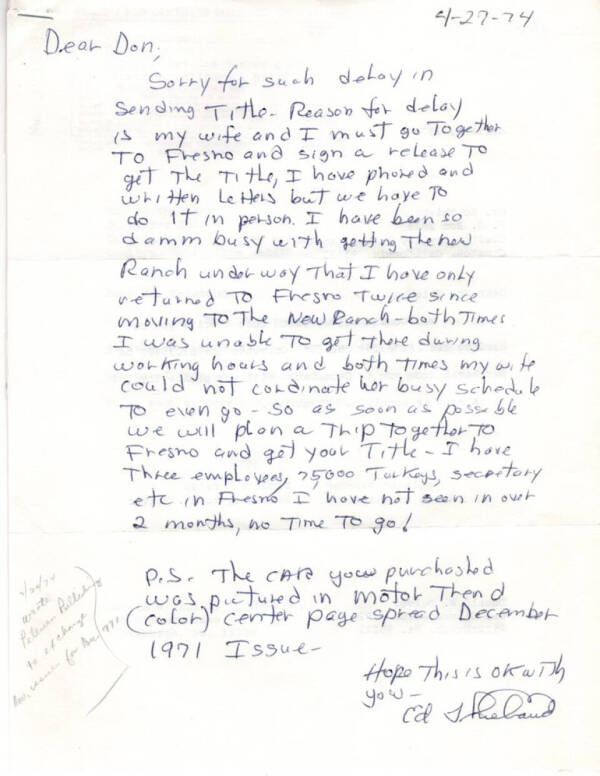 4-27-74
Dear Don,
Sorry for such delay in
sending Title - Reason for delay
is my wife and I must go Together
To Fresno and sign a release To
get The Title, I have phoned and
written letters but we have To
do it in person. I have been so
damm busy with getting The new
Ranch under way That I have only
returned To Fresno Twice since
moving To The New Ranch - both Times
I was unable To get There during
working hours and both Times my wife
could not cordinate her busy schedule
To even go - So as soon as possible
we will plan a Trip Together To
Fresno and get your Title - I have
Three employees, 25,000 Turkeys, secretary
etc in Fresno I have not seen in over
2 months, no Time To go!
P.S. The CAR you purchased
was pictured in Motor Trend
(color) center page spread December
1971 Issue -
Hope This is OK with
you -
Ed
wrote
Petersen Publishing
for Dec 1971